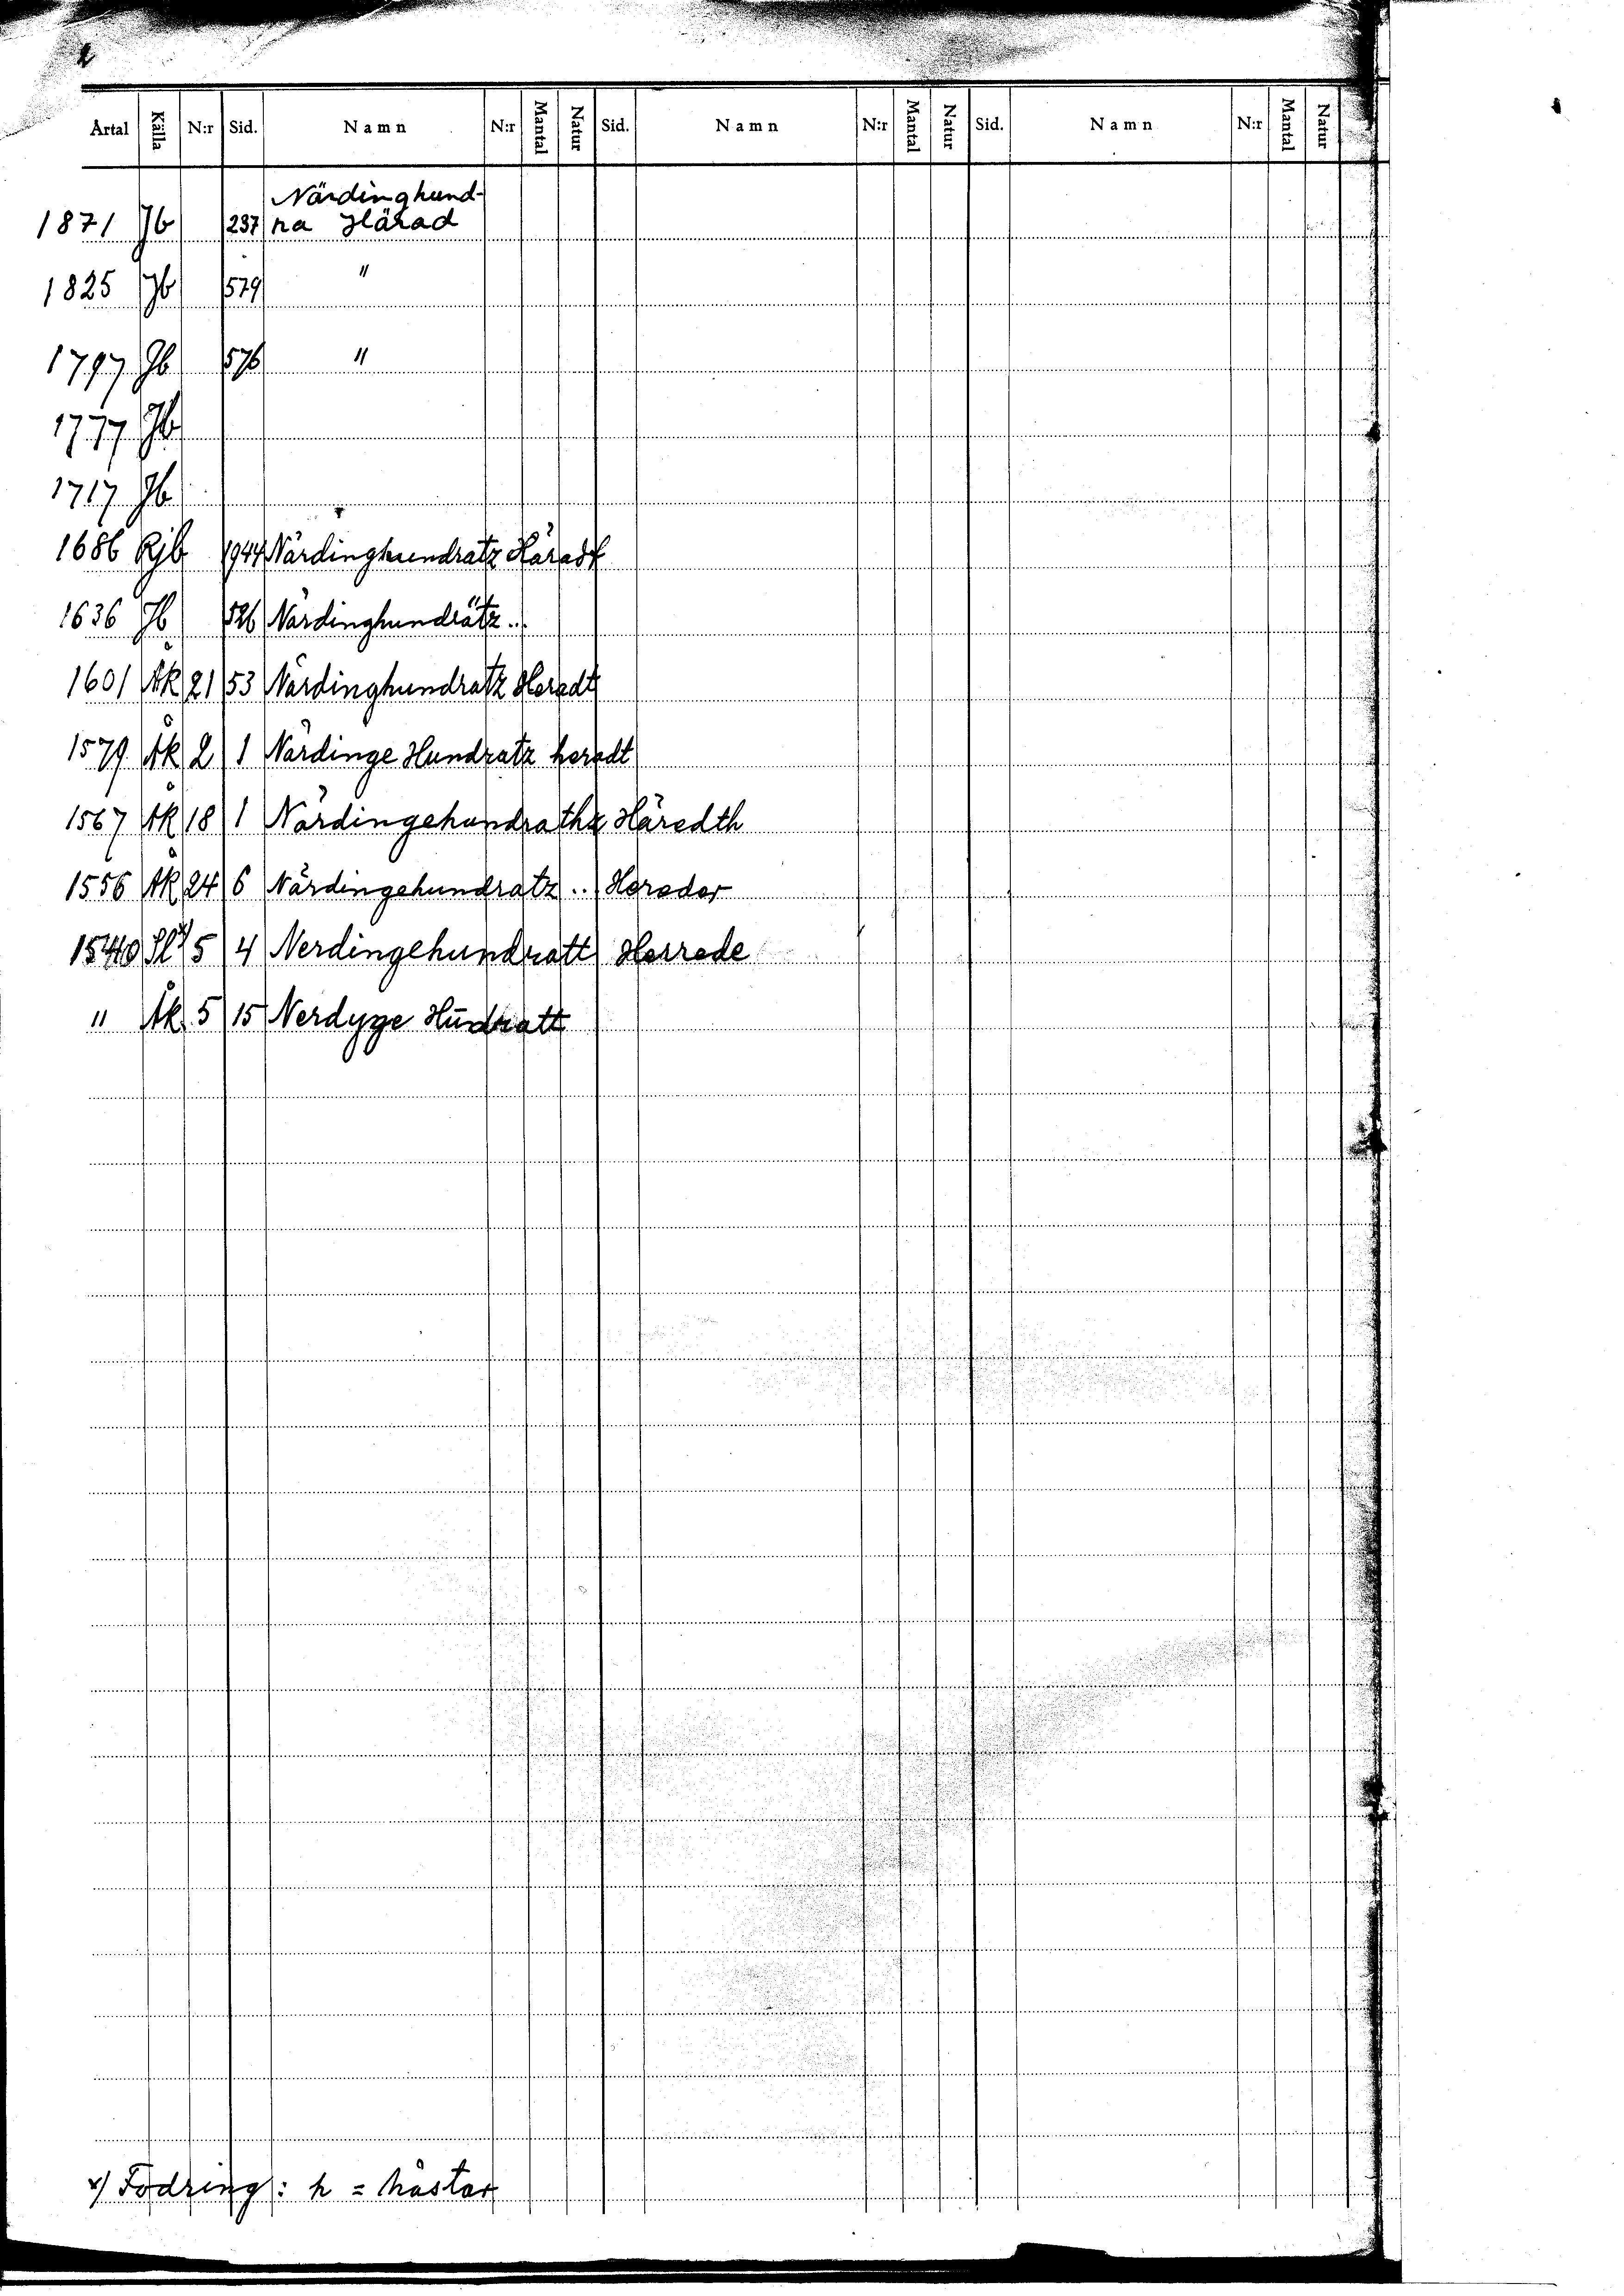 Årtal Källa N:r Sid. Namn N:r Mantal Natur Sid. Namn N:r Mantal Natur Sid. Namn N:r Mantal Natur
Närdinghund-
1871 Jb 237 ra Härad
1825 Jb 579 "
1797 Jb 576 "
1777 Jb
1717 Jb
1686 Rjb 1944 Närdinghundratz Häradt
1636 Jb 526 Närdinghundrätz..
1601 ÅK 21 53 Närdinghundratz Heradt
1579 ÅK 2 1 Närdinge Hundratz heradt
1567 ÅK 18 1 Närdingehundrathz Häredth
1556 ÅK 24 6 Närdingehundratz .. Herader
1540 Sl x) 5 4 Nerdingehundratt Herrede
" ÅK 5 15 Nerdyge Hūdratt
x) Fodring: h = hästar